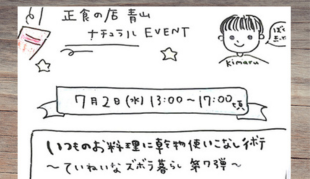 正食の店 青山
ナチュラル EVENT
kimaru
7月2日(水) 13:00〜17:00頃
いつものお料理に乾物使いこなし術
〜ていねいなズボラ暮らし 第7弾〜